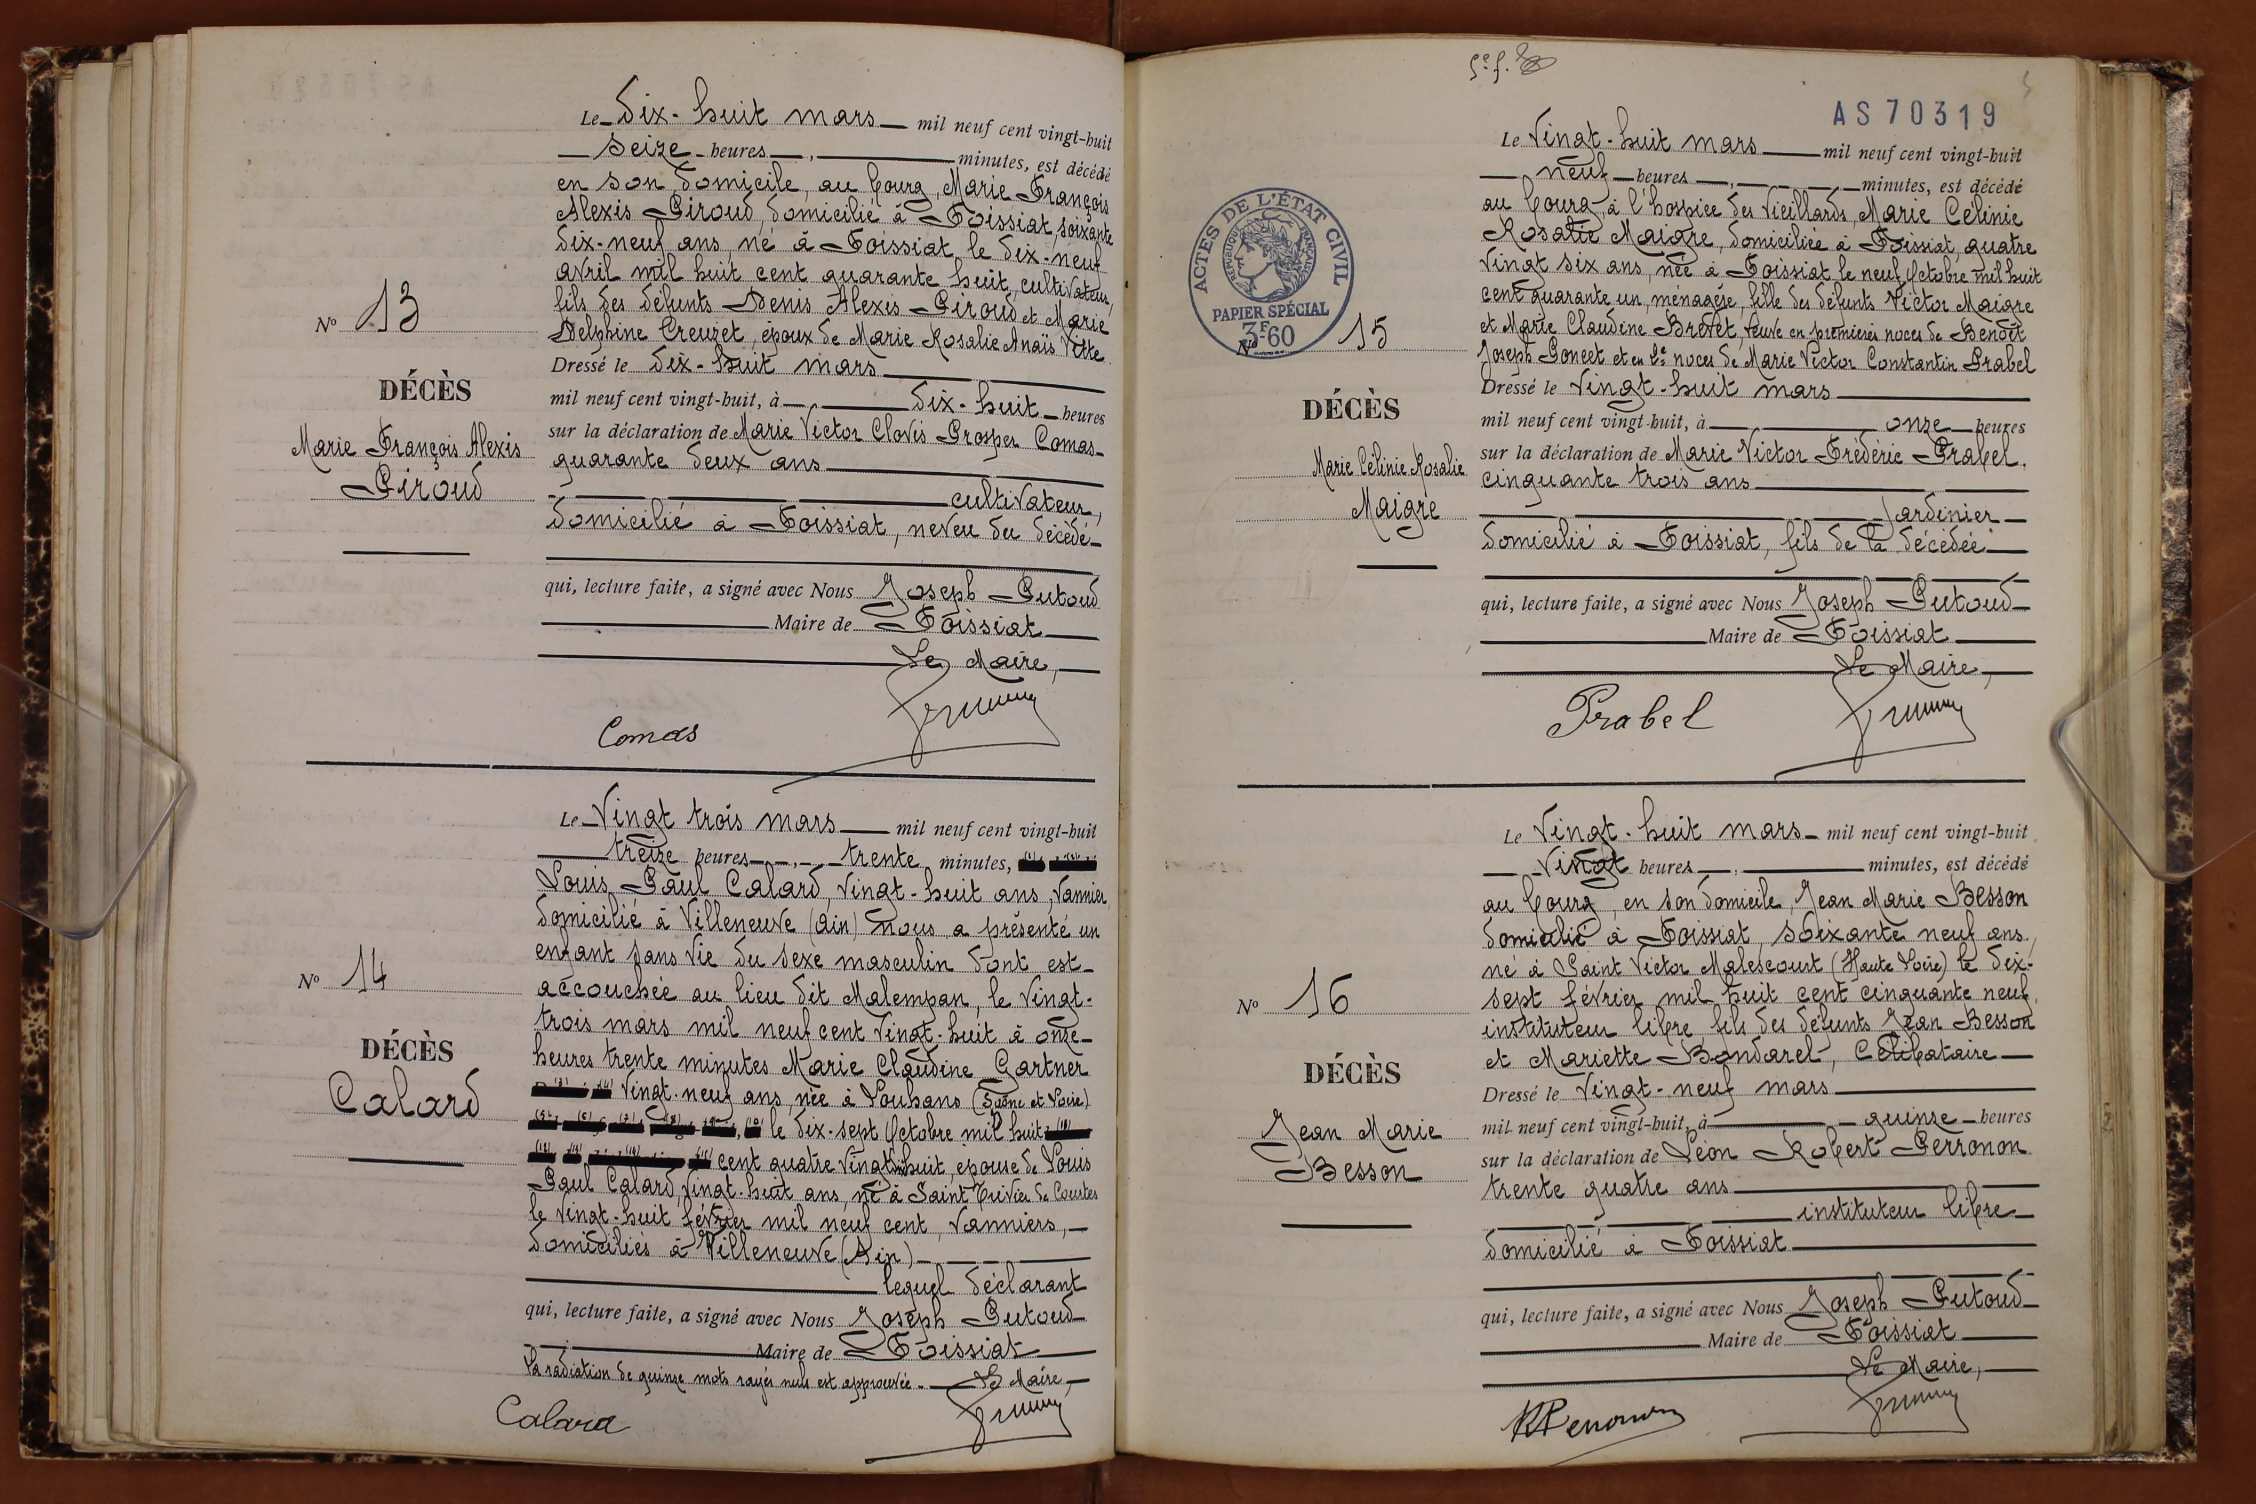 Le Dix-huit mars mil neuf cent vingt-huit
Seize heures minutes, est décédé
en son domicile, au bourg, Marie François
Alexis Piroud, domicilié à Foissiat, soixante
dix-neuf ans, né à Foissiat, le dix-neuf
avril mil huit cent quarante huit, cultivateur,
fils des défunts Denis Alexis Piroud et Marie
Delphine Creuzet, époux de Marie Rosalie Anaïs Vitte
Dressé le dix-huit mars
mil neuf cent vingt-huit, à dix-huit heures
sur la déclaration de Marie Victor Clovis Prosper Comas
quarante deux ans
cultivateur,
domicilié à Foissiat, neveu du décédé
qui, lecture faite, a signé avec Nous Joseph Putoud
Maire de Foissiat
Le Maire,
Comas
No 13
DÉCÈS
Marie François Alexis
Piroud
Le Vingt trois mars mil neuf cent vingt-huit
treize heures trente minutes,
Louis Paul Calard, vingt-huit ans, vannier,
domicilié à Villeneuve (Ain) nous a présenté un
enfant sans vie du sexe masculin dont est
accouchée au lieu dit Malempan, le vingt-
trois mars mil neuf cent vingt-huit à onze
heures trente minutes Marie Claudine Gartner
vingt-neuf ans, née à Louhans (Saône et Loire)
le dix-sept octobre mil huit
cent quatre vingt dix huit, épouse de Louis
Paul Calard, vingt-huit ans, né à Saint Trivier de Courtes
le vingt-huit février mil neuf cent, vanniers,
domiciliés à Villeneuve (Ain)
lequel déclarant
qui, lecture faite, a signé avec Nous Joseph Putoud
Maire de Foissiat
La radiation de quinze mots rayés nuls est approuvée. Le Maire,
Calard
No 14
DÉCÈS
Calard
5e f.
AS 70319
Le Vingt-huit mars mil neuf cent vingt-huit
neuf heures minutes, est décédé
au bourg, à l'hospice des Vieillards, Marie Célinie
Rosalie Maigre, domiciliée à Foissiat, quatre
vingt six ans, née à Foissiat le neuf octobre mil huit
cent quarante un, ménagère, fille des défunts Victor Maigre
et Marie Claudine Brevet, veuve en premières noces de Benoît
Joseph Poncet et en 2e noces de Marie Victor Constantin Prabel
Dressé le vingt-huit mars
mil neuf cent vingt-huit, à onze heures
sur la déclaration de Marie Victor Frédéric Prabel,
cinquante trois ans
jardinier
domicilié à Foissiat, fils de la décédée
qui, lecture faite, a signé avec Nous Joseph Putoud
Maire de Foissiat
Le Maire,
Prabel
ACTES DE L'ÉTAT CIVIL
RÉPUBLIQUE FRANÇAISE
PAPIER SPÉCIAL
3F60
No 15
DÉCÈS
Marie Célinie Rosalie
Maigre
Le Vingt-huit mars mil neuf cent vingt-huit
Vingt heures minutes, est décédé
au bourg, en son domicile, Jean Marie Besson
domicilié à Foissiat, soixante neuf ans,
né à Saint Victor Malescourt (Haute Loire) le dix-
sept février mil huit cent cinquante neuf,
instituteur libre, fils des défunts Jean Besson
et Mariette Bondarel, célibataire
Dressé le vingt-neuf mars
mil neuf cent vingt-huit, à quinze heures
sur la déclaration de Léon Robert Perronon
trente quatre ans
instituteur libre
domicilié à Foissiat
qui, lecture faite, a signé avec Nous Joseph Putoud
Maire de Foissiat
Le Maire,
No 16
DÉCÈS
Jean Marie
Besson